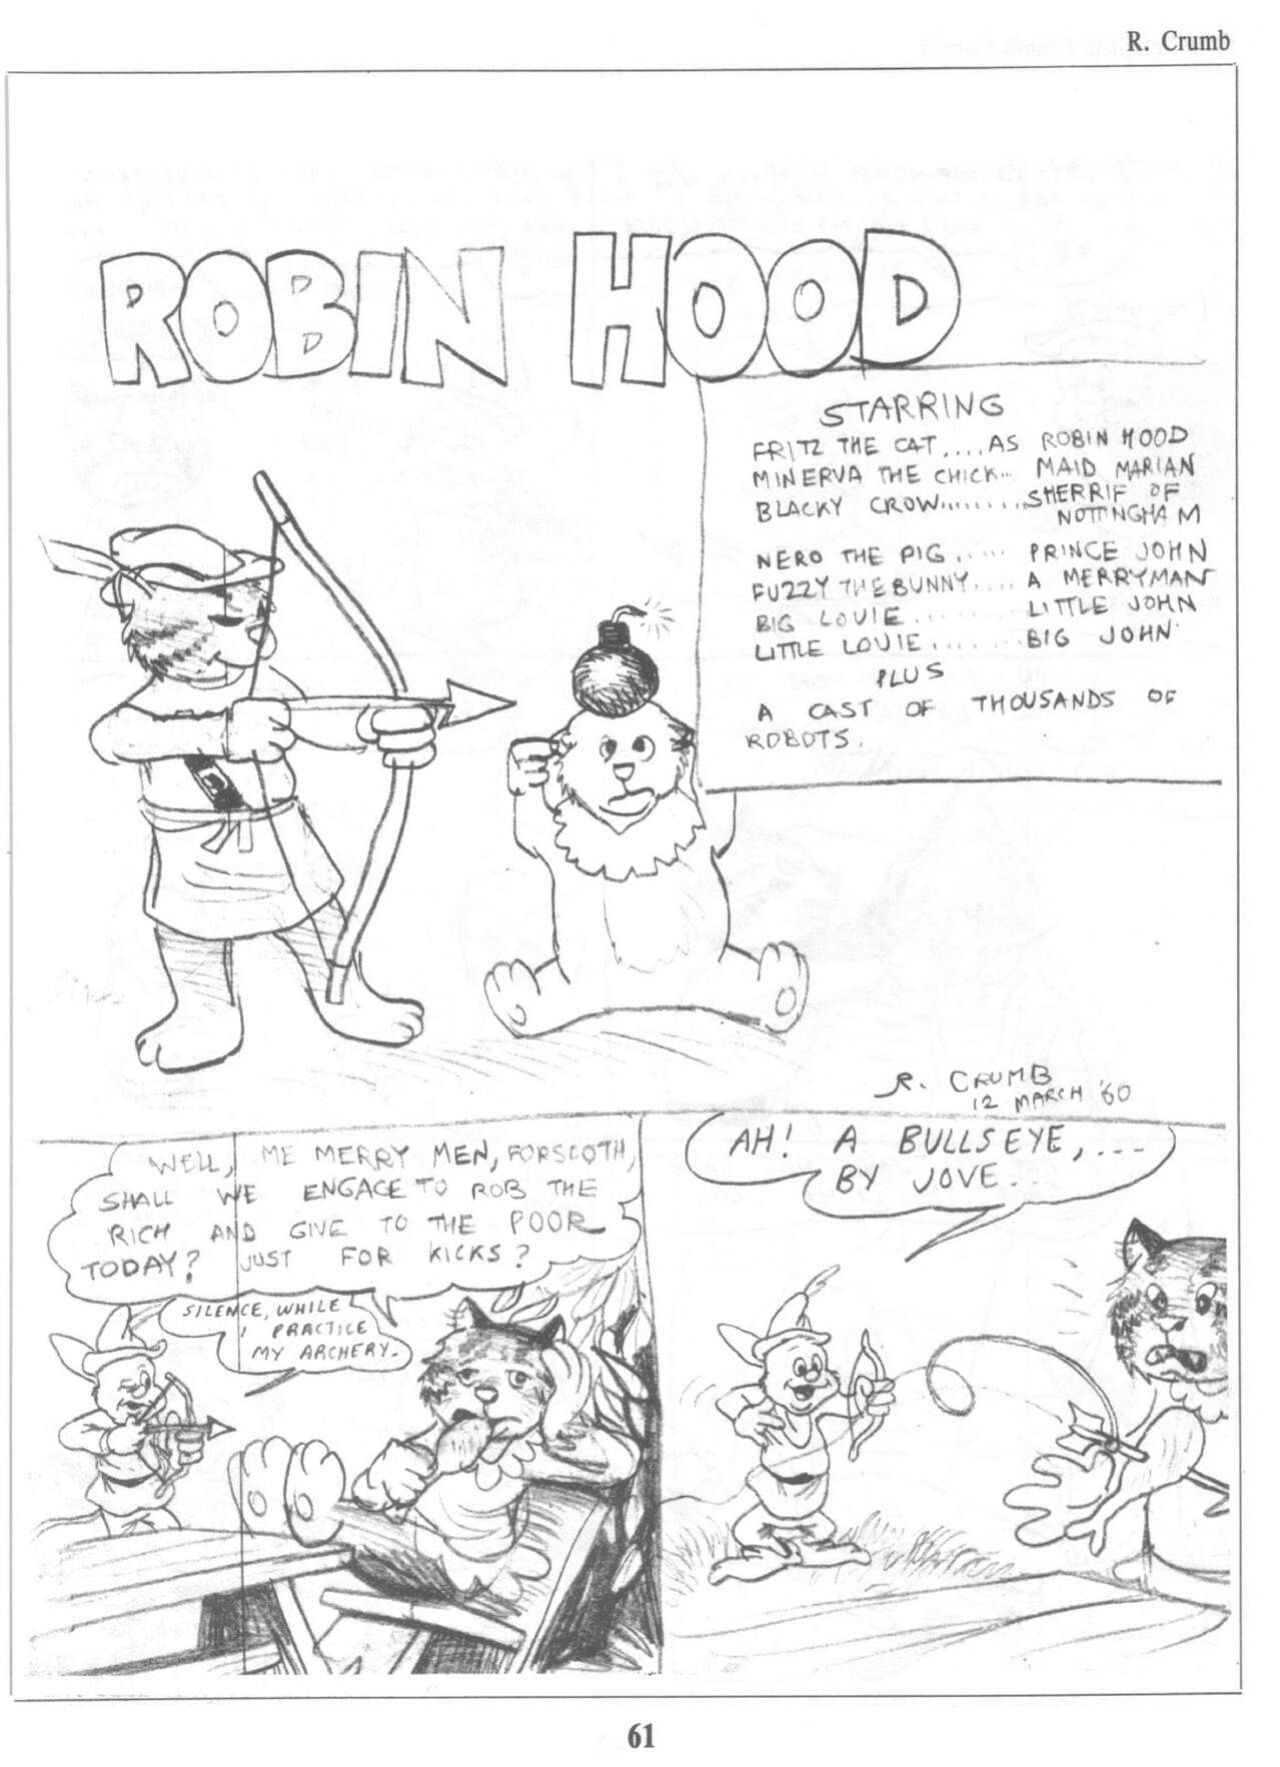 R. Crumb
ROBIN HOOD
STARRING
FRITZ THE CAT....AS ROBIN HOOD
MINERVA THE CHICK... MAID MARIAN
BLACKY CROW.........SHERRIF OF
NOTTINGHAM
NERO THE PIG..... PRINCE JOHN
FUZZY THE BUNNY.... A MERRYMAN
BIG LOUIE........ LITTLE JOHN
LITTLE LOUIE.......BIG JOHN
PLUS
A CAST OF THOUSANDS OF
ROBOTS.
R. CRUMB
12 MARCH '60
WELL, ME MERRY MEN, FORSCOTH,
SHALL WE ENGAGE TO ROB THE
RICH AND GIVE TO THE POOR
TODAY? JUST FOR KICKS?
SILENCE, WHILE
I PRACTICE
MY ARCHERY.
AH! A BULLSEYE,...
BY JOVE..
61